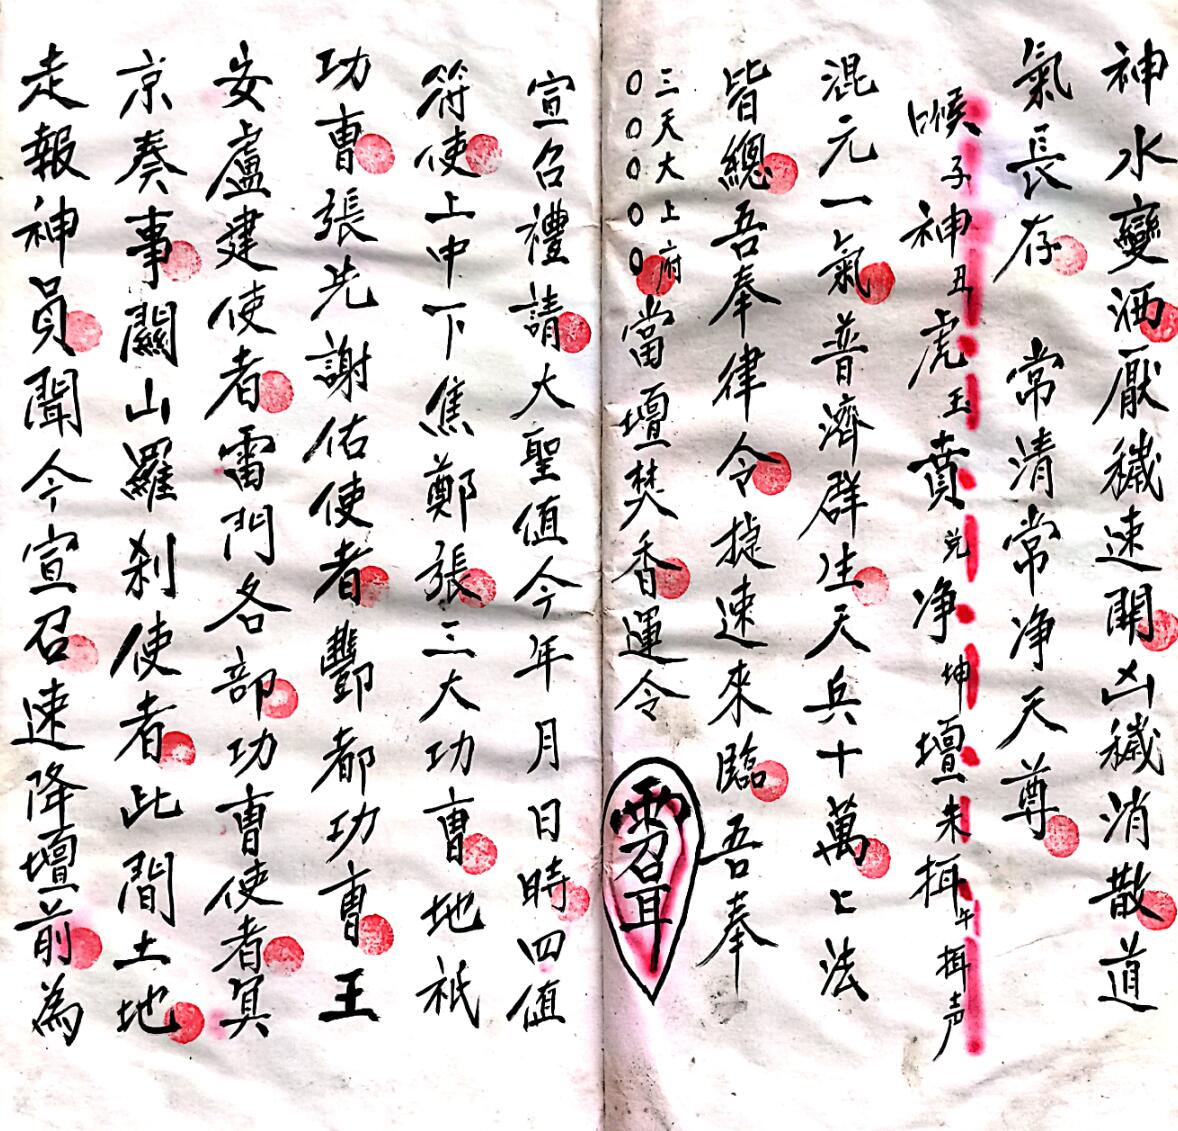 神水變洒厭穢速開凶穢消散道
氣長存 常清常净天尊
喉子神丑虎玉賁兑净坤壇未挕午挕声
混元一氣普濟群生天兵十萬七法
皆總吾奉律令捷速來臨吾奉
三天大上府
〇〇〇〇〇當壇焚香運令
宣召禮請大聖值今年月日時四值
符使上中下焦鄭張三大功曹地祇
功曹張先謝佑使者酆都功曹王
安盧建使者雷門各部功曹使者冥
京奏事關山羅刹使者此間土地
走報神員聞今宣召速降壇前為